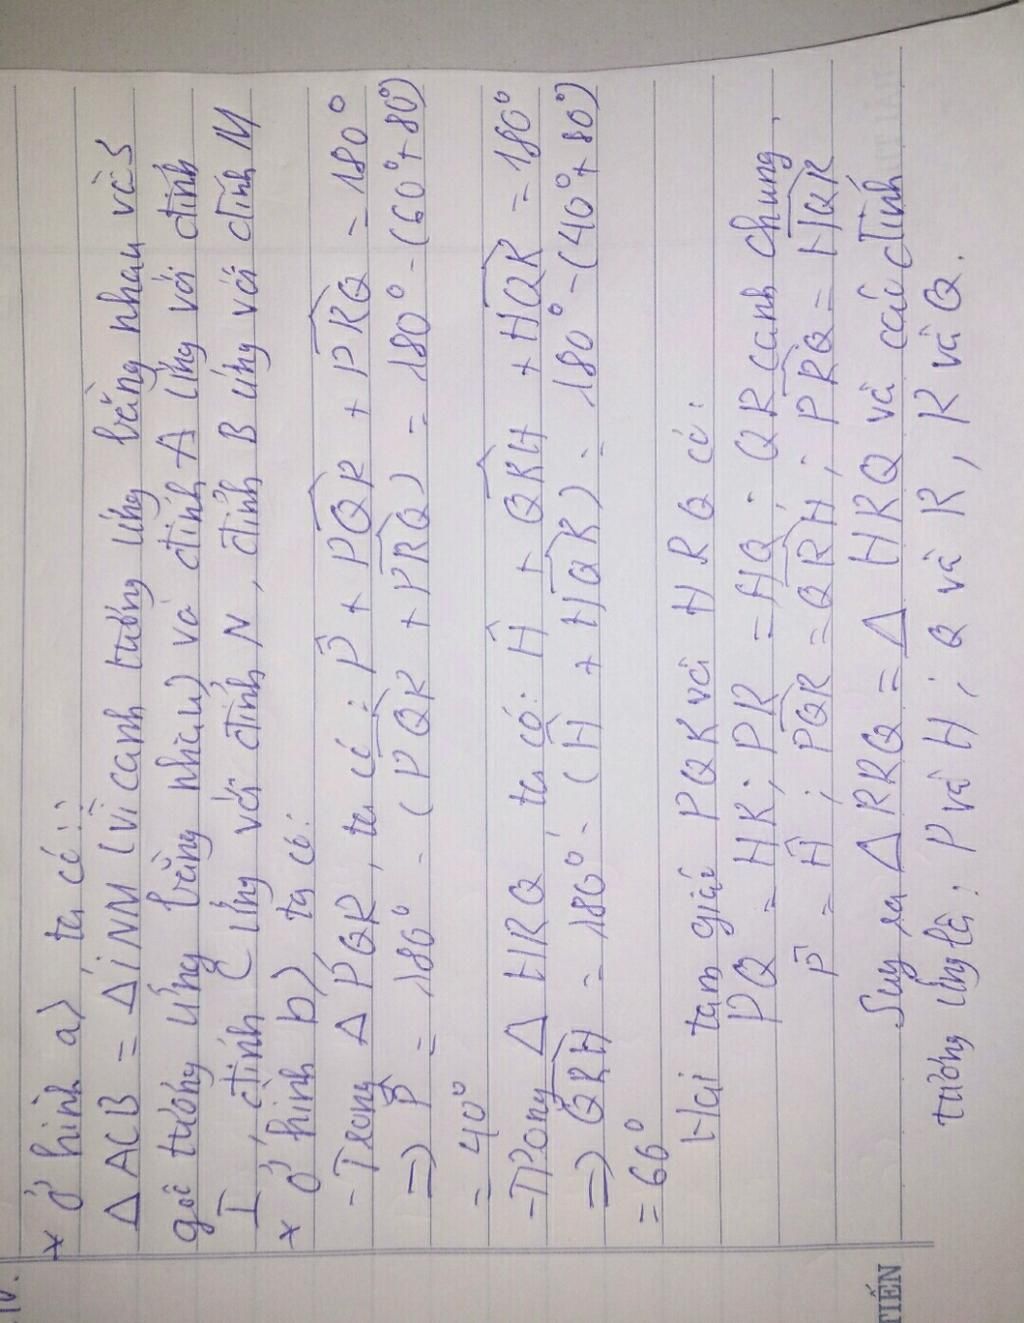 10.
* Ở hình a) ta có:
ΔACB = ΔiNM (vì cạnh tương ứng bằng nhau và 3
góc tương ứng bằng nhau) và đỉnh A ứng với đỉnh
I, đỉnh C ứng với đỉnh N, đỉnh B ứng với đỉnh M
* Ở hình b) ta có:
- Trong Δ PQR, ta có: P̂ + P͡QR + P͡RQ = 180°
=> P̂ = 180° - (P͡QR + P͡RQ) = 180° - (60° + 80°)
= 40°
- Trong Δ HRQ ta có: Ĥ + Q͡RH + H͡QR = 180°
=> Q͡RH = 180° - (Ĥ + H͡QR) = 180° - (40° + 80°)
= 60°
Hai tam giác PQR và HRQ có:
PQ = HR; PR = HQ; QR cạnh chung.
P̂ = Ĥ; P͡QR = Q͡RH; P͡RQ = H͡QR
Suy ra ΔRRQ = Δ HRQ và các đỉnh
tương ứng là: P và H; Q và R, R và Q.
TIẾN